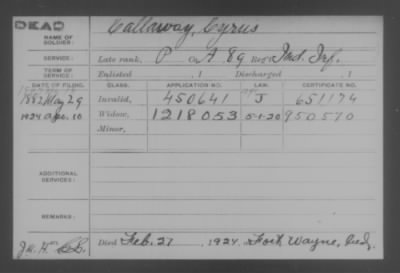 DEAD
Callaway, Cyrus
NAME OF
SOLDIER:
SERVICE: Late rank, P Co. A. 89 Reg't Ind. Inf.
TERM OF
SERVICE: Enlisted , 1 Discharged , 1
DATE OF FILING. CLASS. APPLICATION NO. LAW. CERTIFICATE NO.
1882 May 29 Invalid, 450641 J 651174
1924 Apr. 10 Widow, 1218053 5-1-20 950570
Minor,
ADDITIONAL
SERVICES:
REMARKS:
Died Feb. 27 , 1924, Fort Wayne, Ind.